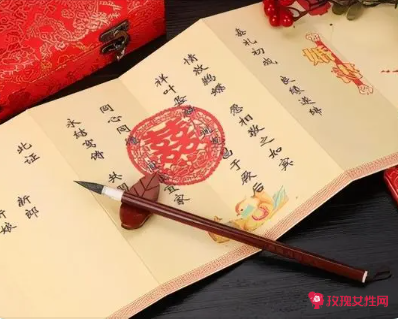 婚书
嘉礼初成,良缘遂缔
情敦鹣鲽 愿相敬之如宾
祥叶螽 昌于厥后
同心同 宜家
永结鸾俦 共
此证
新郎
新娘
玫瑰女性网